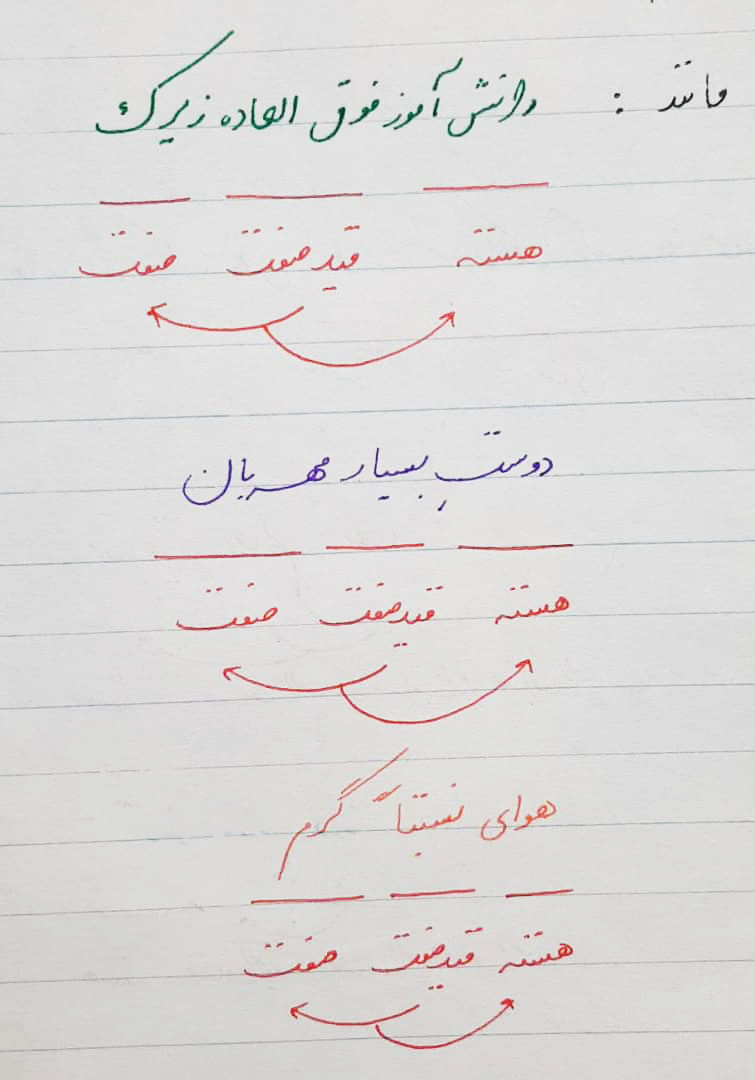 مانند : دانش آموز فوق العاده زیرک
هسته قید صفت صفت
دوستِ بسیار مهربان
هسته قید صفت صفت
هوای نسبتاً گرم
هسته قید صفت صفت